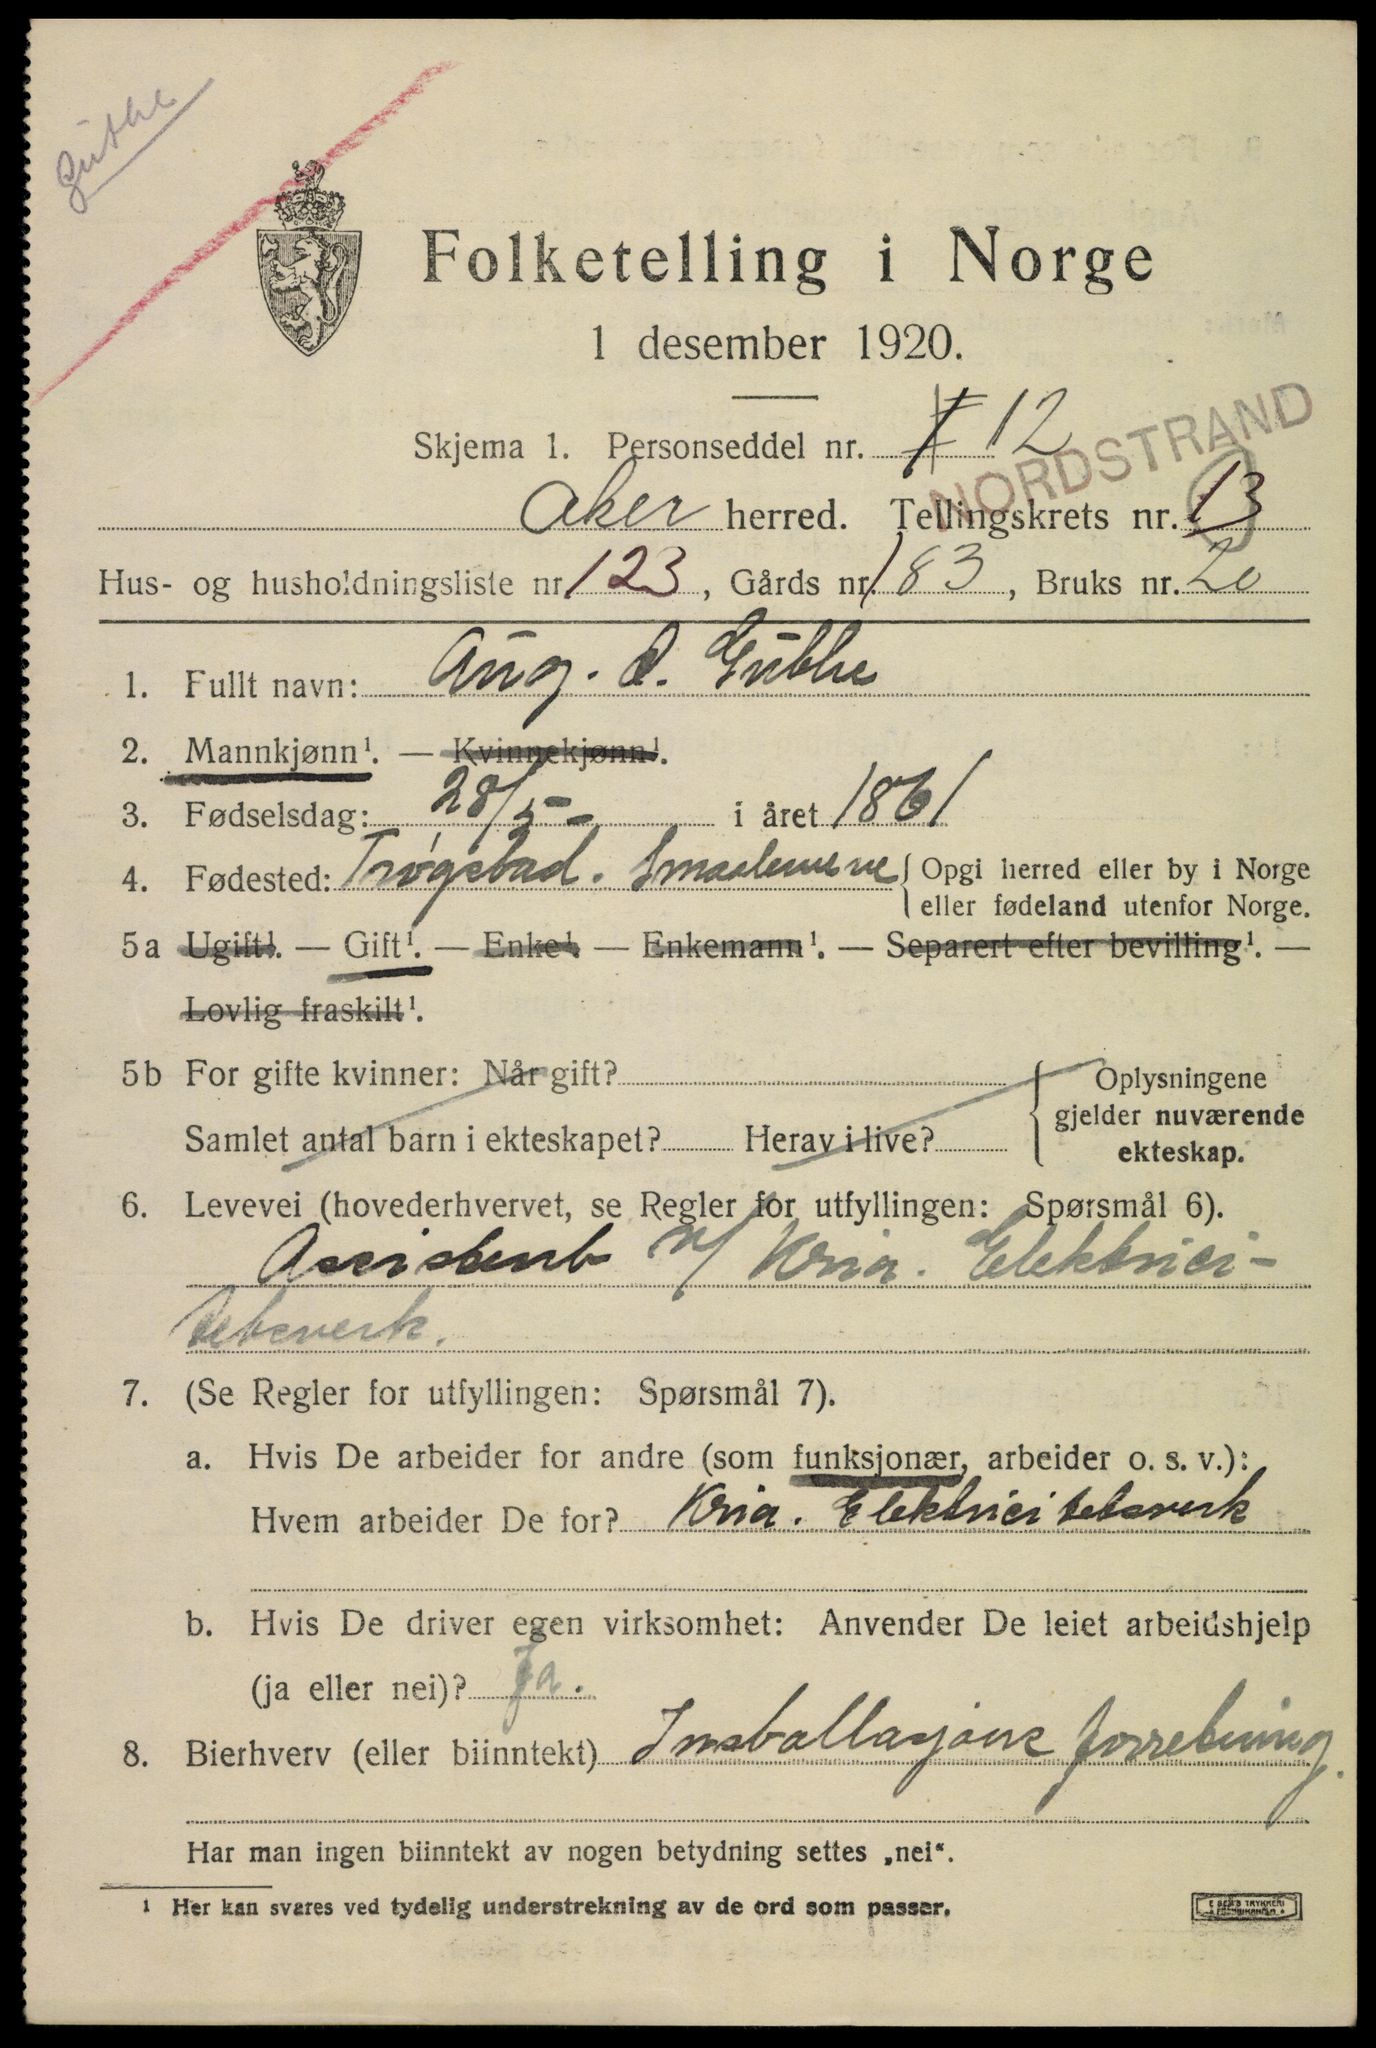 Guthe
Folketelling i Norge
1 desember 1920.
Skjema 1. Personseddel nr. 12
NORDSTRAND
Aker herred. Tellingskrets nr. 13
Hus- og husholdningsliste nr. 123, Gårds nr. 183, Bruks nr. 20
1. Fullt navn: Aug. O. Guthe
2. Mannkjønn¹. — Kvinnekjønn¹.
3. Fødselsdag: 28/5 – i året 1861
4. Fødested: Trøgstad. Smaalenene { Opgi herred eller by i Norge
eller fødeland utenfor Norge.
5a Ugift¹. — Gift¹. — Enke¹. — Enkemann¹. — Separert efter bevilling¹. —
Lovlig fraskilt¹.
5b For gifte kvinner: Når gift?
Samlet antal barn i ekteskapet? Herav i live?
Oplysningene
gjelder nuværende
ekteskap.
6. Levevei (hovederhvervet, se Regler for utfyllingen: Spørsmål 6).
Assistent v/ Kria. Elektrici-
tetsverk.
7. (Se Regler for utfyllingen: Spørsmål 7).
a. Hvis De arbeider for andre (som funksjonær, arbeider o. s. v.):
Hvem arbeider De for? Kria. Elektricitetsverk
b. Hvis De driver egen virksomhet: Anvender De leiet arbeidshjelp
(ja eller nei)? Ja.
8. Bierhverv (eller biinntekt) Installasjons forretning.
Har man ingen biinntekt av nogen betydning settes „nei“.
¹ Her kan svares ved tydelig understrekning av de ord som passer.